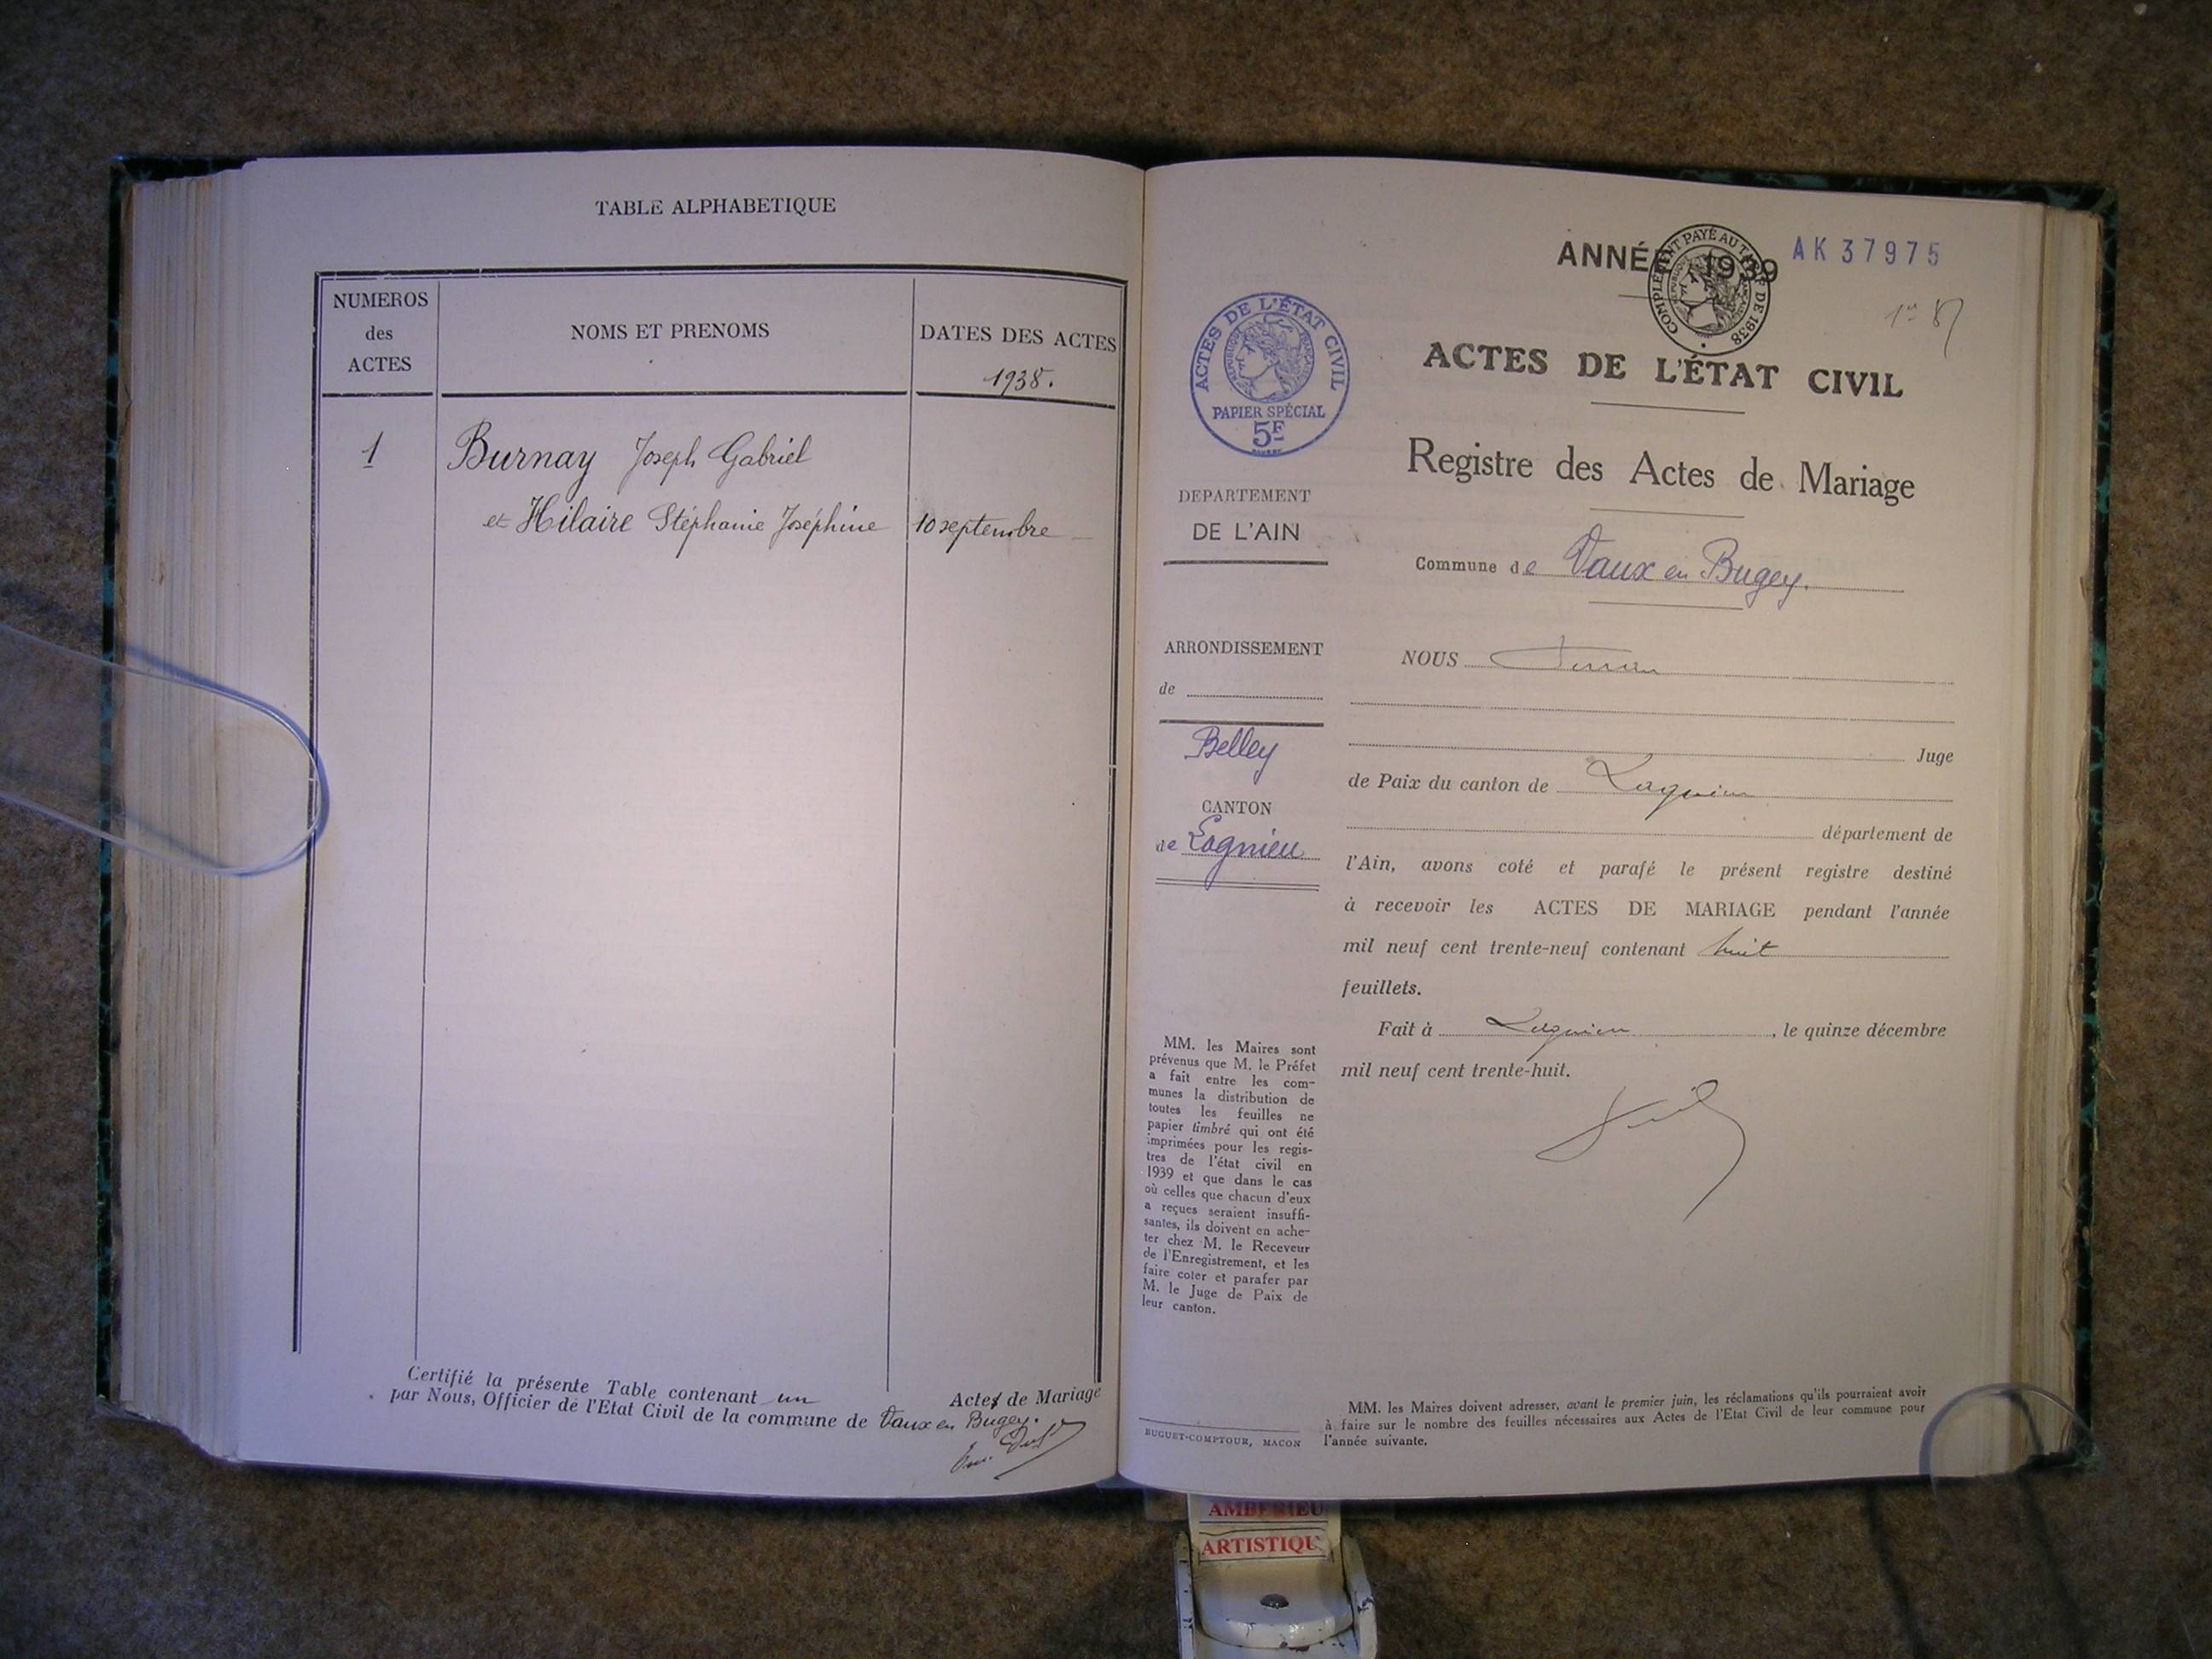 TABLE ALPHABETIQUE
NUMEROS
des
ACTES
NOMS ET PRENOMS
DATES DES ACTES
1938.
1
Burnay Joseph Gabriel
et Hilaire Stéphanie Joséphine
10 septembre
Certifié la présente Table contenant un Actes de Mariage
par Nous, Officier de l'Etat Civil de la commune de Vaux en Bugey.
ANNÉE 1939
COMPLÉMENT PAYÉ AU DE 1938
AK 37975
ACTES DE L'ÉTAT CIVIL
RÉPUBLIQUE FRANÇAISE
PAPIER SPÉCIAL
5F
DEPARTEMENT
DE L'AIN
ARRONDISSEMENT
de
Belley
CANTON
de Lagnieu
MM. les Maires sont
prévenus que M. le Préfet
a fait entre les com-
munes la distribution de
toutes les feuilles ne
papier timbré qui ont été
imprimées pour les regis-
tres de l'état civil en
1939 et que dans le cas
où celles que chacun d'eux
a reçues seraient insuffi-
santes, ils doivent en ache-
ter chez M. le Receveur
de l'Enregistrement, et les
faire coter et parafer par
M. le Juge de Paix de
leur canton.
BUGUET-COMPTOUR, MACON
ACTES DE L'ÉTAT CIVIL
Registre des Actes de Mariage
Commune de Vaux en Bugey.
NOUS
Juge
de Paix du canton de Lagnieu
département de
l'Ain, avons coté et parafé le présent registre destiné
à recevoir les ACTES DE MARIAGE pendant l'année
mil neuf cent trente-neuf contenant huit
feuillets.
Fait à Lagnieu, le quinze décembre
mil neuf cent trente-huit.
MM. les Maires doivent adresser, avant le premier juin, les réclamations qu'ils pourraient avoir
à faire sur le nombre des feuilles nécessaires aux Actes de l'Etat Civil de leur commune pour
l'année suivante.
AMBERIEU
ARTISTIQU